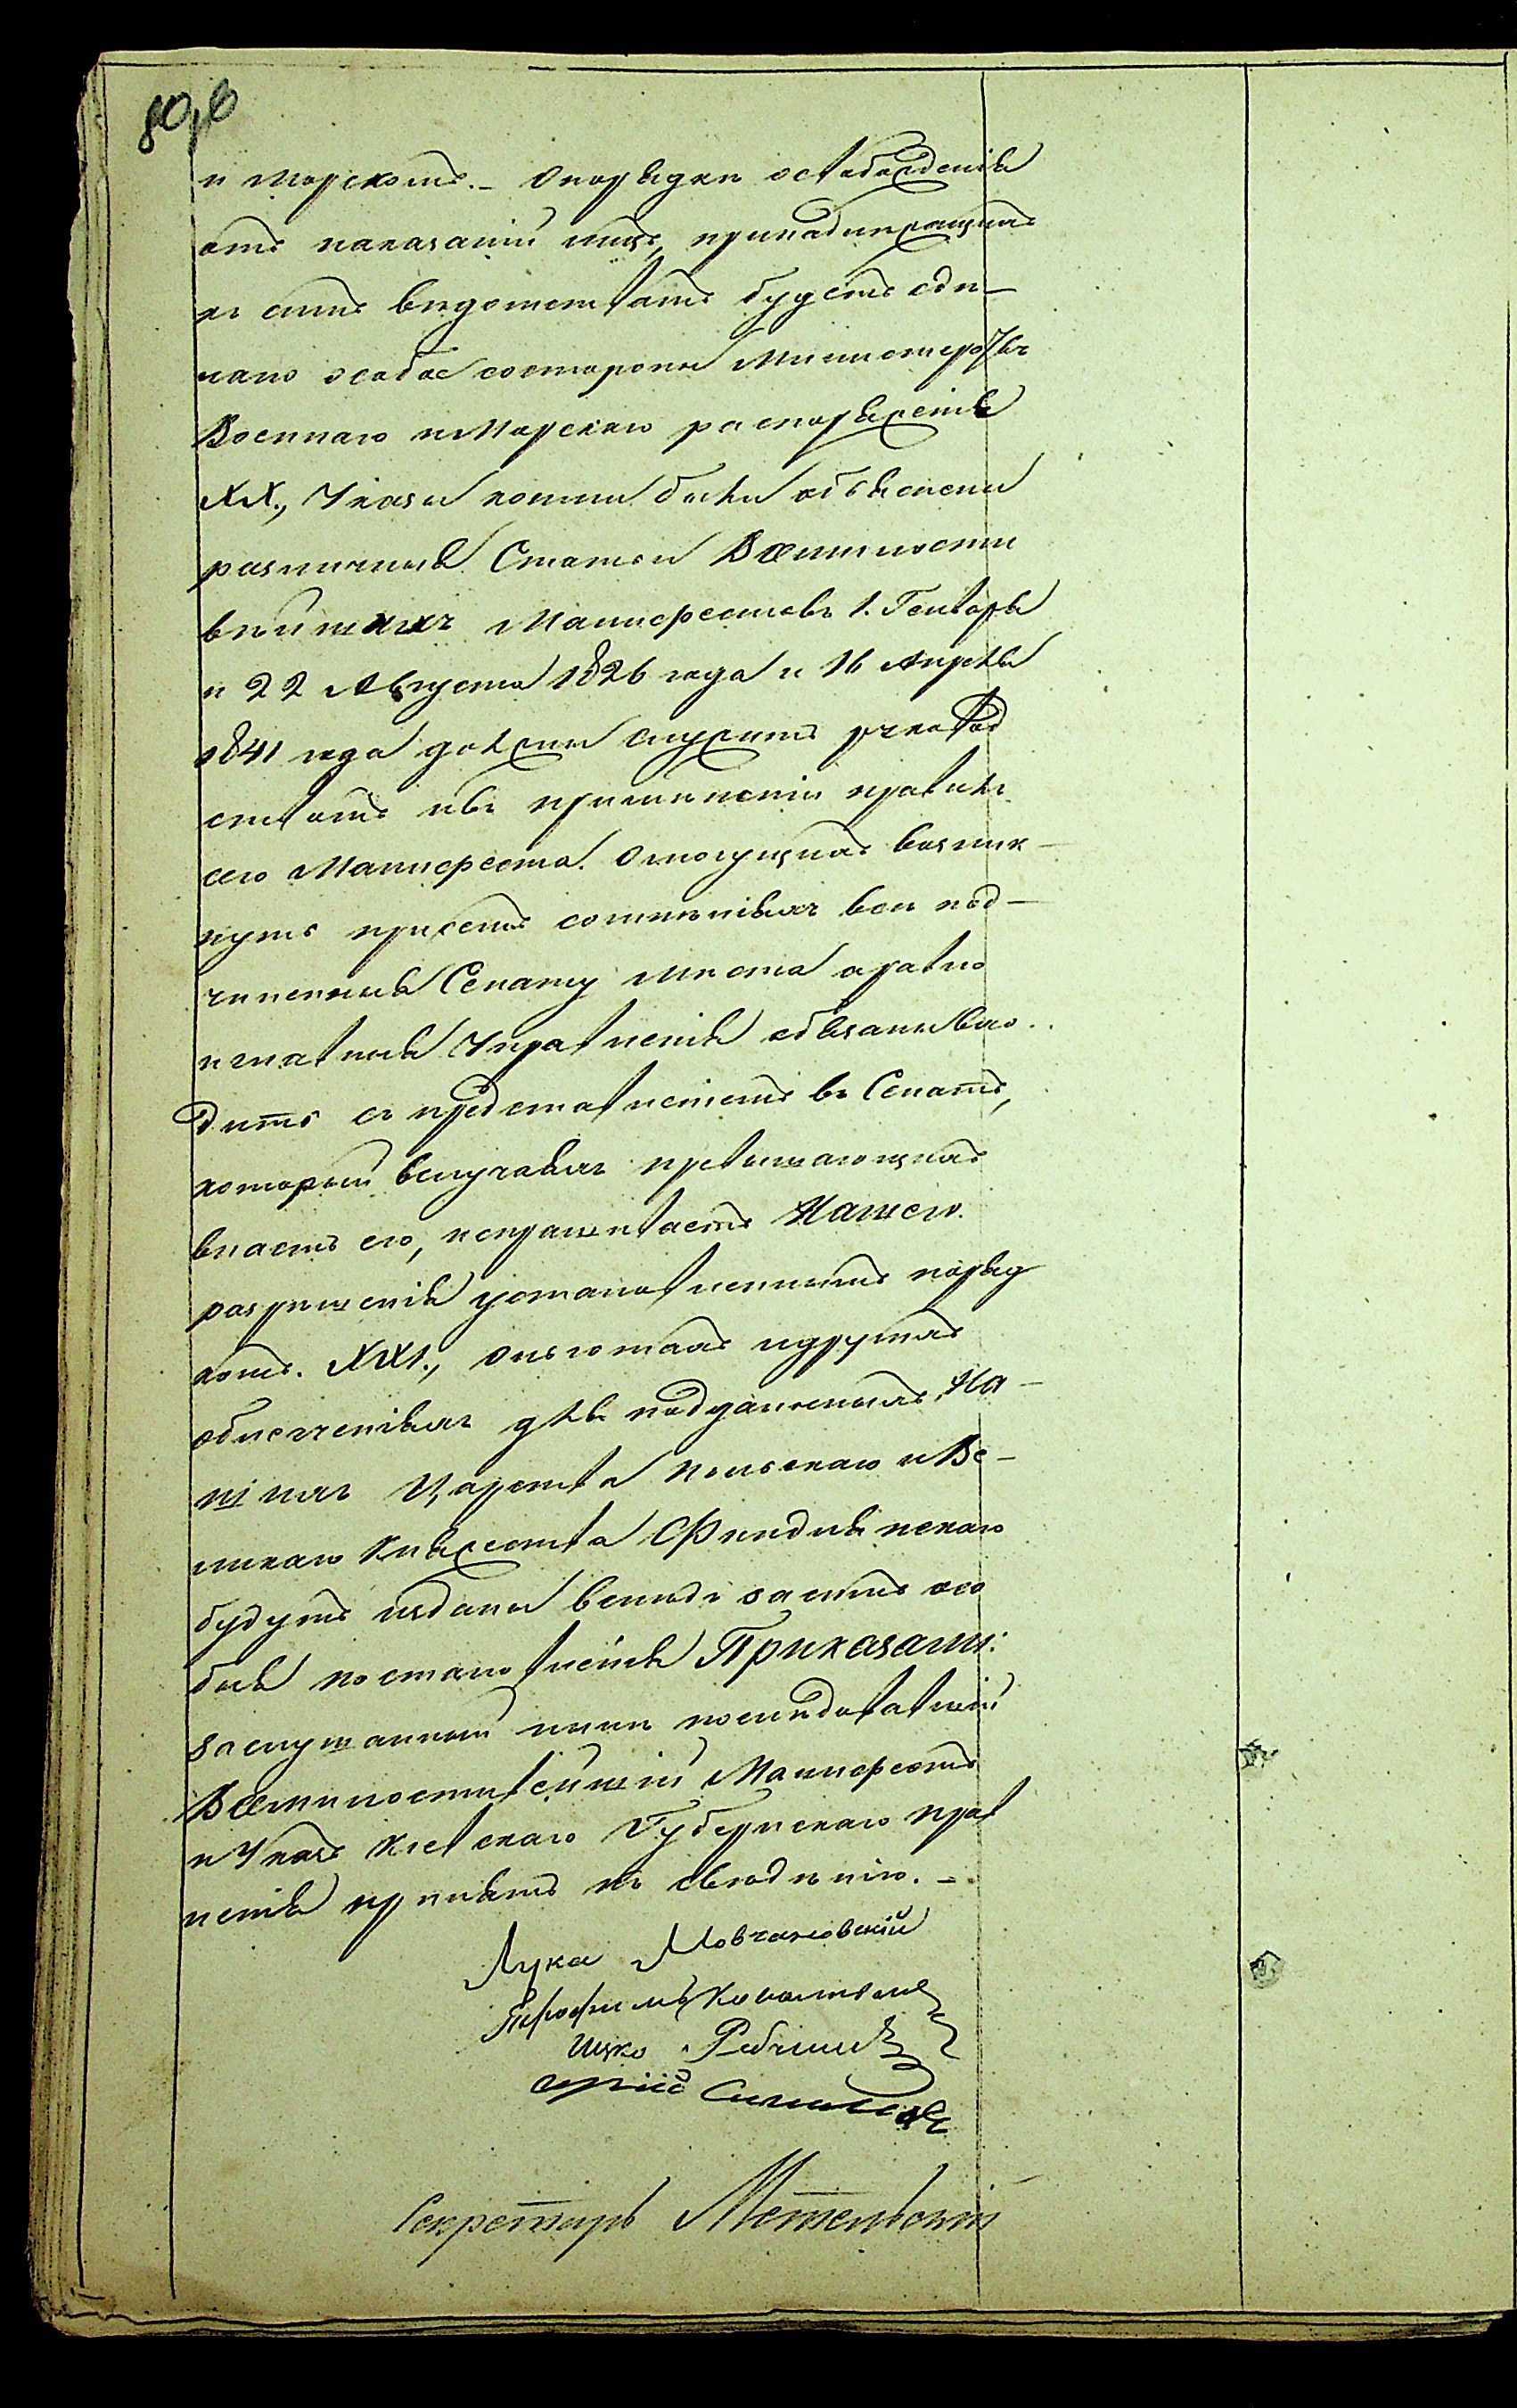 80 б
и Морскомъ. – О порядкѣ освобожденія
отъ наказаній лицъ, принадлежащихъ
къ симъ вѣдомствамъ будетъ сдѣ–
лано особое со стороны Министерствъ
Военнаго и Морскаго распоряженіе
XX., Указы коими были объяснены
различныя Статьи Всемилости
вѣйшихъ Манифестовъ 1. Генваря
и 22 Августа 1826 года и 16 Апрѣля
1841 года должны служить руковод
ствомъ и въ примѣненіи правилъ
сего Манифеста. О могущихъ возник–
нуть при семъ сомнѣніяхъ всѣ под–
чиненныя Сенату мѣста равно
и главныя Управленія обязаны вхо
дить съ представленіемъ въ Сенатъ,
который въ случаяхъ превышающихъ
власть его, испрашиваетъ Нашего
разрѣшенія установленнымъ поряд
комъ. XXI., О льготахъ и другихъ
облегченіяхъ для подданныхъ На–
шихъ Царства Польскаго и Ве–
ликаго Княжества Финляндскаго
будутъ изданы вслѣдъ за симъ осо
быя постановленія Приказали:
заслушанный ими послѣдовавшій
Всемилостивѣйшій Манифестъ
и Указъ Кіевскаго Губернскаго Прав
ленія принять къ свѣденію. –
Лука Мовчановскій
Секретарь Метельскій